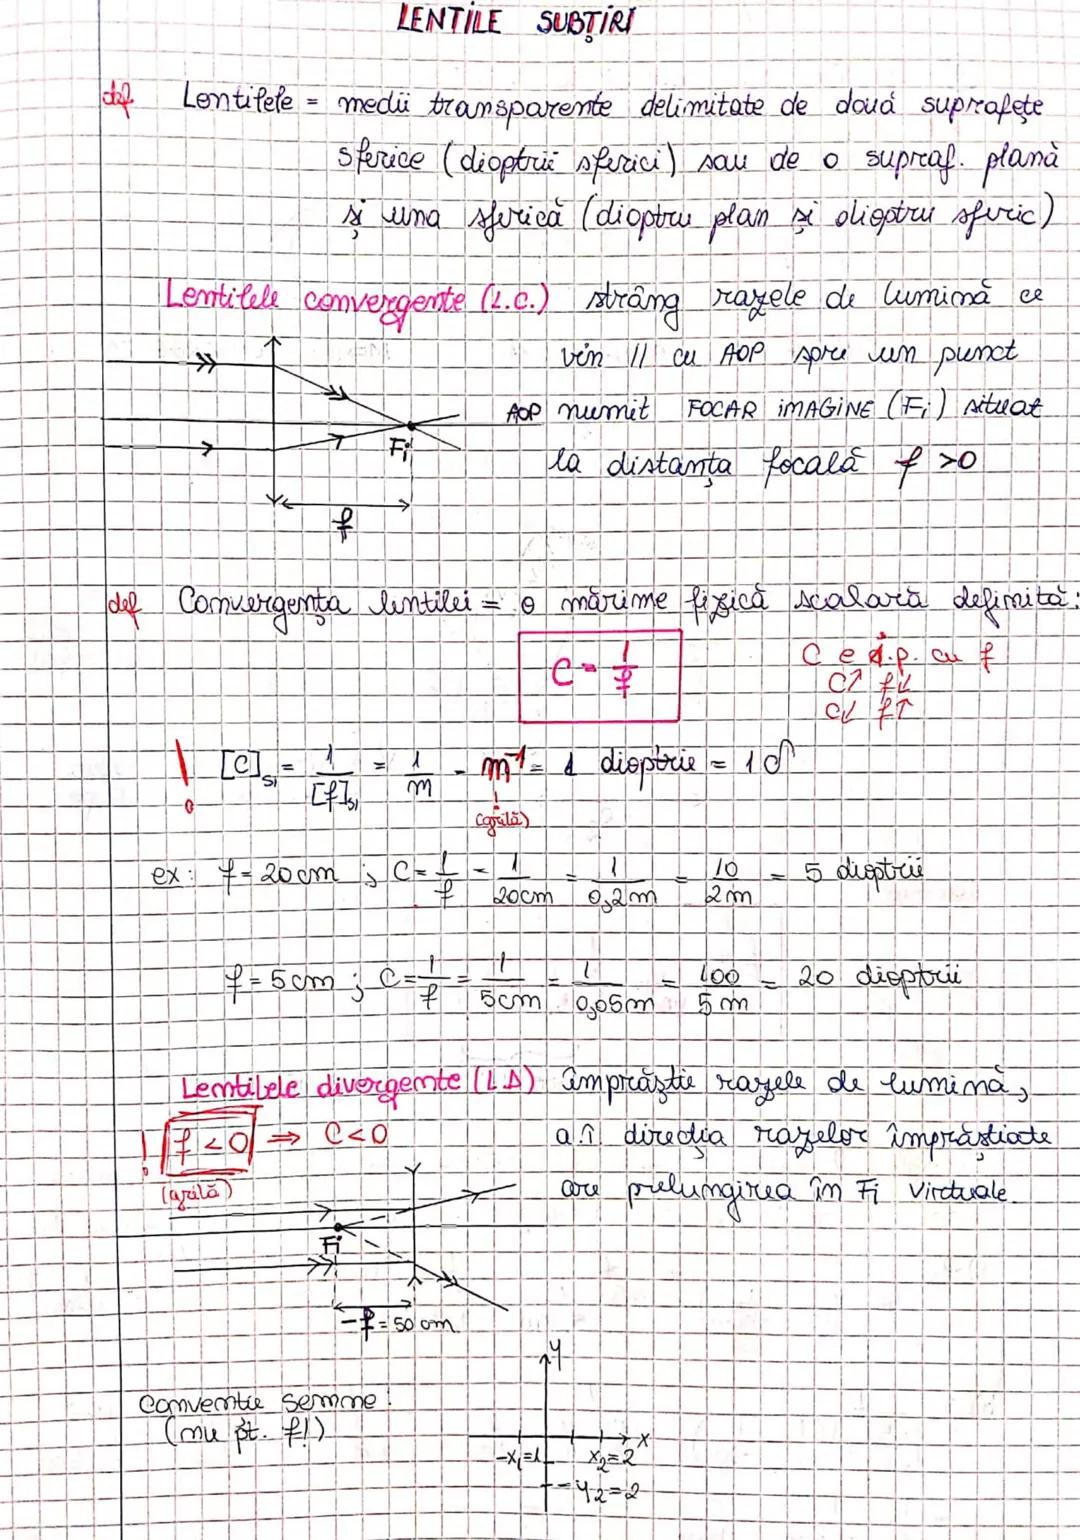 LENTILE SUBȚIRI
def Lentilele = medii transparente delimitate de două suprafețe
sferice (dioptrii sferici) sau de o supraf. plană
și una sferică (dioptru plan și dioptru sferic)
Lentilele convergente (L.C.) strâng razele de lumină ce
vin // cu AOP spre un punct
AOP numit FOCAR IMAGINE (Fi) situat
Fi
la distanța focală f >0
f
def Convergența lentilei = o mărime fizică scalară definită:
C = 1/f
C e i.p. cu f
C↑ f↓
C↓ f↑
! [C]SI = 1/[f]SI = 1/m = m⁻¹ = 1 dioptrie = 1 δ
! (grilă)
ex: f = 20cm ; C = 1/f = 1/20cm = 1/0,2m = 10/2m = 5 dioptrii
f = 5cm ; C = 1/f = 1/5cm = 1/0,05m = 100/5m = 20 dioptrii
Lentilele divergente (LD) împrăștie razele de lumină,
! f < 0 ⇒ C < 0 a.î. direcția razelor împrăștiate
(grilă) are prelungirea în Fi virtuale.
Fi
-f = 50 cm
y
convenție semne!
(nu pt. f!)
x
-x₁=1 x₂=2
-y₂=2